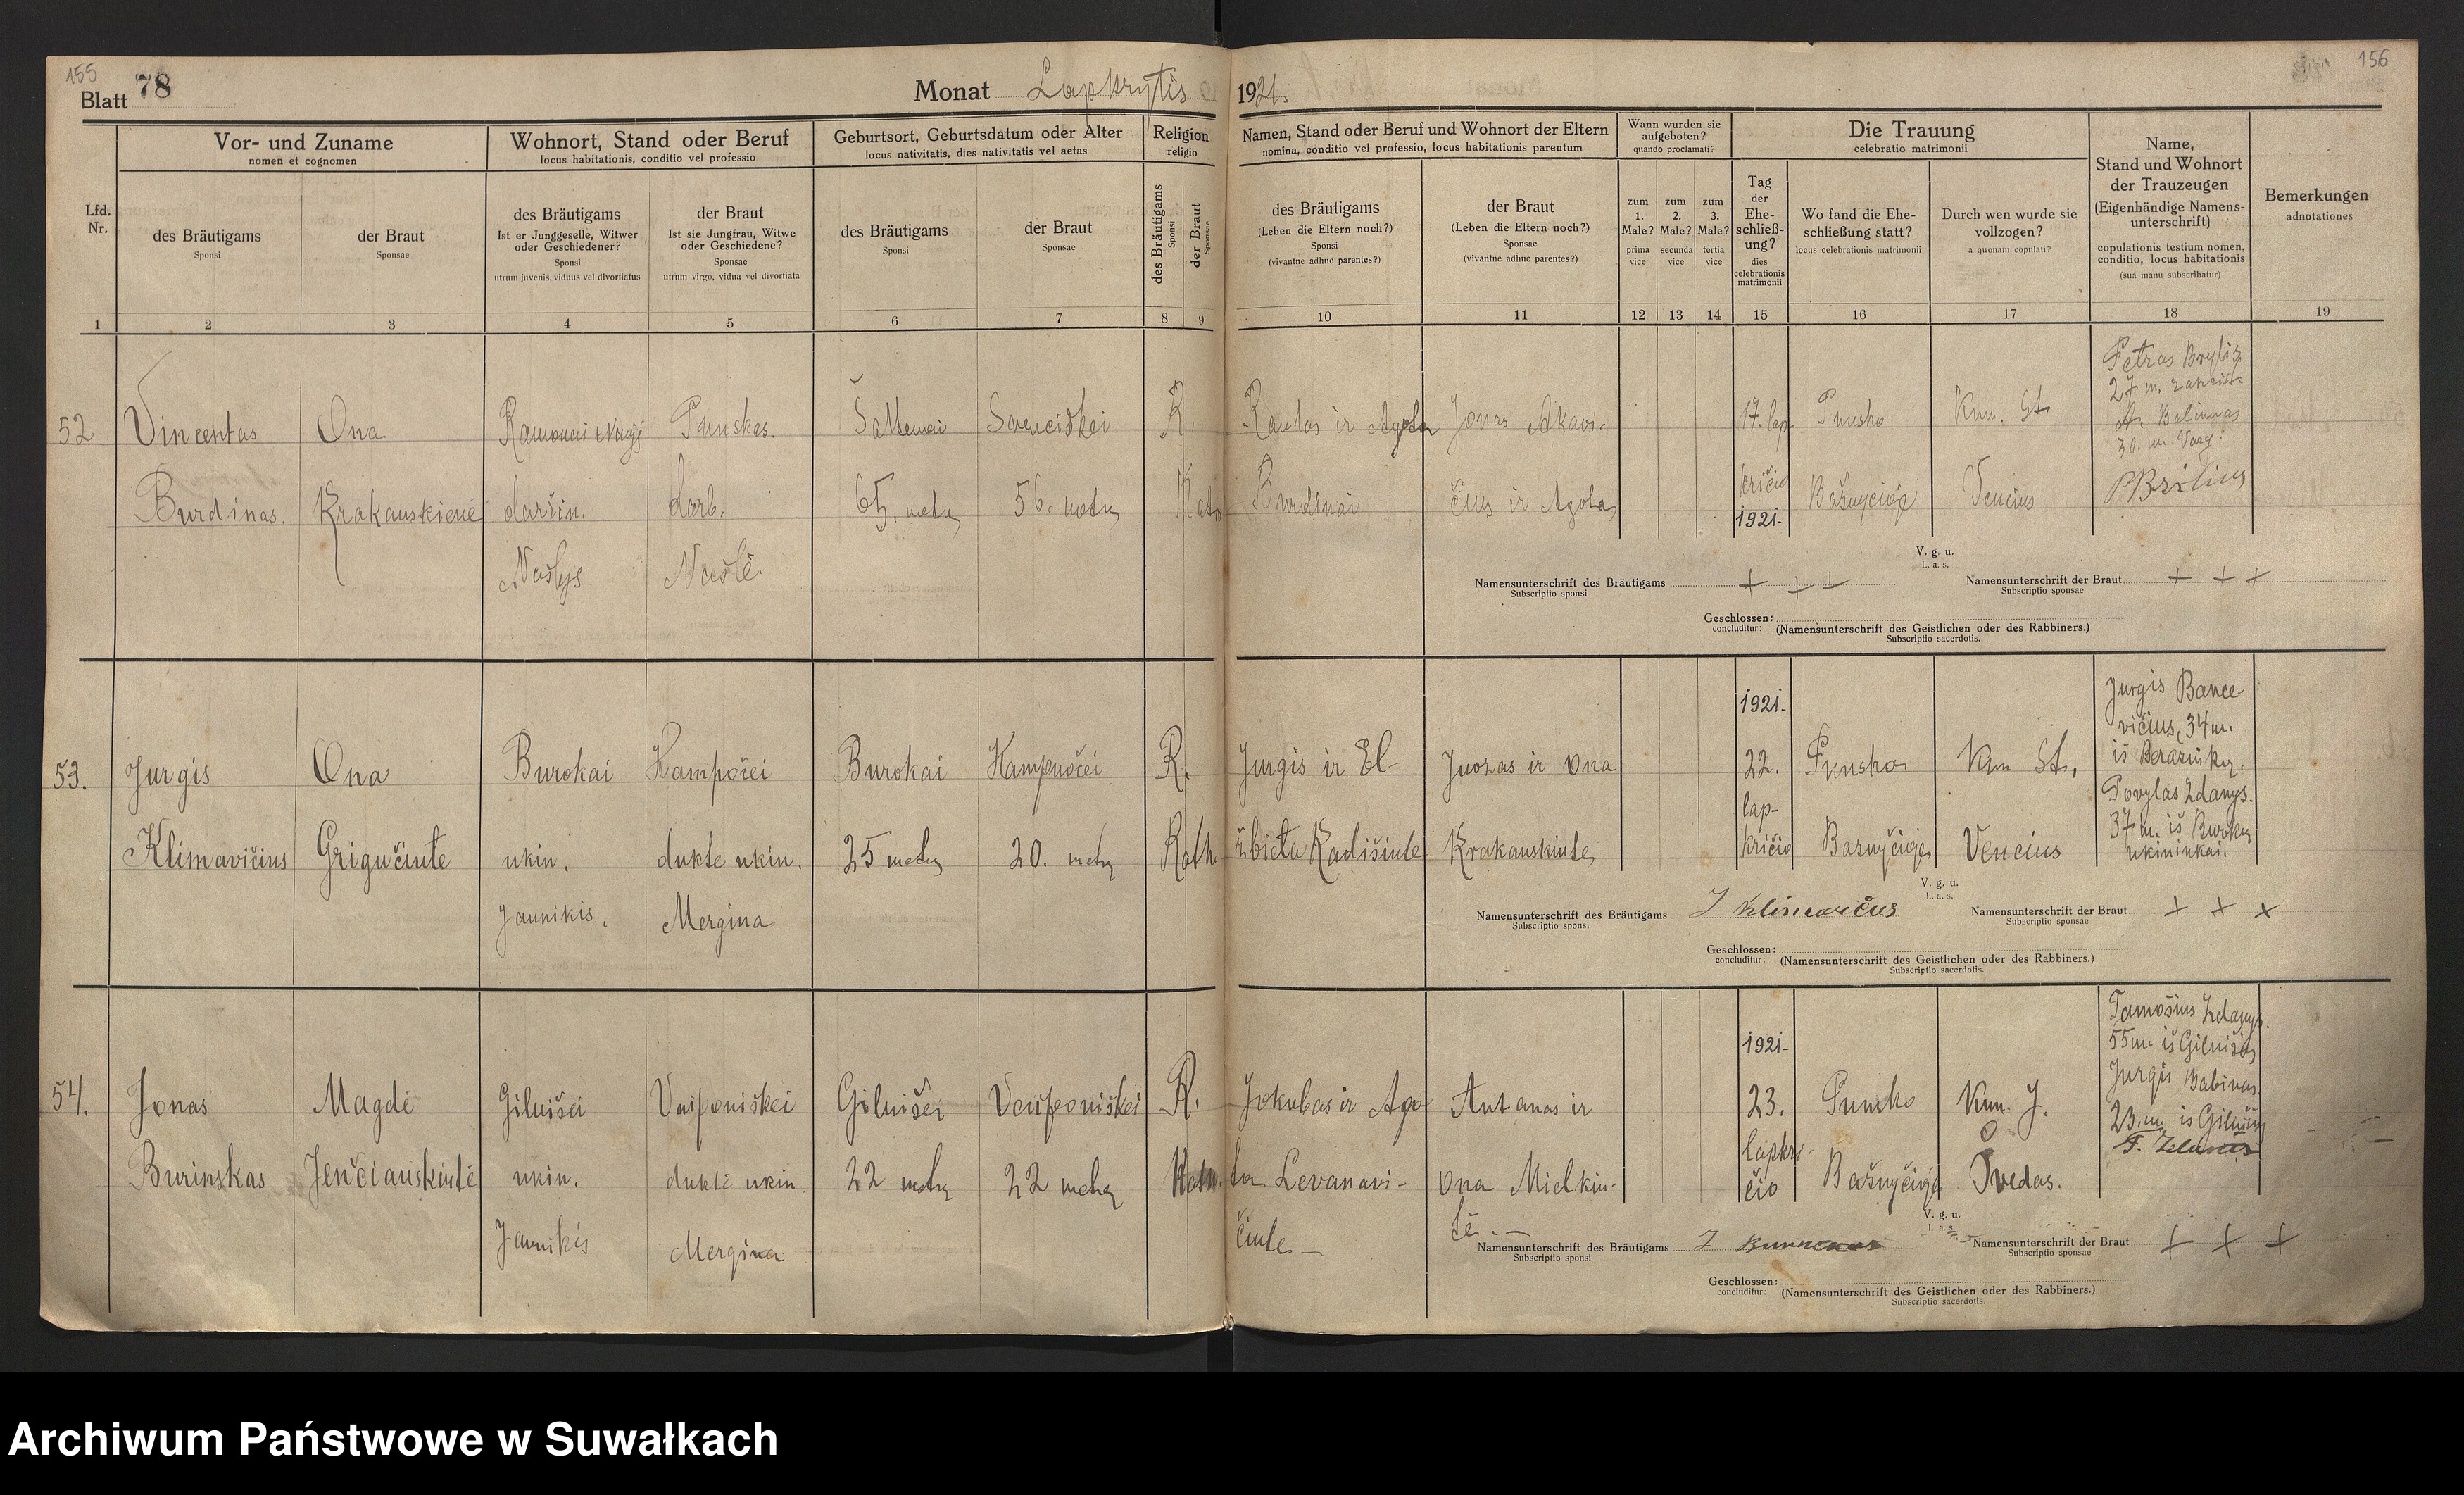 155
78
Blatt
Monat Lapkrytis
1921.
156
Vor- und Zuname
nomen et cognomen
Wohnort, Stand oder Beruf
locus habitationis, conditio vel professio
Geburtsort, Geburtsdatum oder Alter
locus nativitatis, dies nativitatis vel aetas
Religion
religio
Namen, Stand oder Beruf und Wohnort der Eltern
nomina, conditio vel professio, locus habitationis parentum
Wann wurden sie
aufgeboten?
quando proclamati?
Die Trauung
celebratio matrimonii
Name,
Stand und Wohnort
der Trauzeugen
(Eigenhändige Namens-
unterschrift)
copulationis testium nomen,
conditio, locus habitationis
(sua manu subscribatur)
Bemerkungen
adnotationes
Lfd.
Nr.
des Bräutigams
Sponsi
der Braut
Sponsae
des Bräutigams
Ist er Junggeselle, Witwer
oder Geschiedener?
Sponsi
utrum juvenis, viduus vel divortiatus
der Braut
Ist sie Jungfrau, Witwe
oder Geschiedene?
Sponsae
utrum virgo, vidua vel divortiata
des Bräutigams
Sponsi
der Braut
Sponsae
des Bräutigams
Sponsi
der Braut
Sponsae
des Bräutigams
(Leben die Eltern noch?)
Sponsi
(vivantne adhuc parentes?)
der Braut
(Leben die Eltern noch?)
Sponsae
(vivantne adhuc parentes?)
zum
1.
Male?
prima
vice
zum
2.
Male?
secunda
vice
zum
3.
Male?
tertia
vice
Tag
der
Ehe-
schließ-
ung?
dies
celebrationis
matrimonii
Wo fand die Ehe-
schließung statt?
locus celebrationis matrimonii
Durch wen wurde sie
vollzogen?
a quonam copulati?
1 2 3 4 5 6 7 8 9 10 11 12 13 14 15 16 17 18 19
52
Vincentas
Burdinas.
Ona
Krakauskienė
daržin.
Našlys
Punskas.
darb.
Našlė.
65. metų
56. metų
R.
Kat.
Raulas ir Agota
Burdinai
Jonas Akavi-
čius ir Agota
17. lap
kričio
1921.
Punsko
Bažnyčioje
Kun. St.
Vencius
Petras Brylis
27 m.
A. Balinas
30. m.
V. g. u.
L. a. s.
Namensunterschrift des Bräutigams + + +
Subscriptio sponsi
Namensunterschrift der Braut + + +
Subscriptio sponsae
Geschlossen:
concluditur:
(Namensunterschrift des Geistlichen oder des Rabbiners.)
Subscriptio sacerdotis.
53.
Jurgis
Klimavičius
Ona
Grigučiute
Burokai
ukin.
Jaunikis.
dukte ukin.
Mergina
Burokai
25 metų
20. metų
R.
Kath.
Jurgis ir El-
žbieta Kadišiute
Juozas ir Ona
Krakauskiute
1921.
22.
lap-
kričio
Punsko
Bažnyčioje
Kun St.
Vencius
Jurgis Bance
vičius, 34 m.
iš Beraznikų.
Povylas Zdanys.
37 m. iš Burokų
ukininkai.
V. g. u.
L. a. s.
Namensunterschrift des Bräutigams J Klimavičus
Subscriptio sponsi
Namensunterschrift der Braut + + +
Subscriptio sponsae
Geschlossen:
concluditur:
(Namensunterschrift des Geistlichen oder des Rabbiners.)
Subscriptio sacerdotis.
54.
Jonas
Burinskas
Magdė
Jenčiauskiutė
Giluišei
ukin.
Jaunikis
Vaiponiškei
duktė ukin
Mergina
Giluišei
22 metų
Vaiponiškei
22 metų
R.
Kath.
Jokubas ir Ago
ta Levanavi-
čiute
Antanas ir
Ona Mielkiu-
tė.
1921.
23.
lapkri-
čio
Punsko
Bažnyčioje
Kun. J.
Švedas.
Tamošius Zdanys.
55 m. iš Gilnišių
Jurgis Babinas.
23. m. iš
V. g. u.
L. a. s.
Namensunterschrift des Bräutigams
Subscriptio sponsi
Namensunterschrift der Braut + + +
Subscriptio sponsae
Geschlossen:
concluditur:
(Namensunterschrift des Geistlichen oder des Rabbiners.)
Subscriptio sacerdotis.
Archiwum Państwowe w Suwałkach